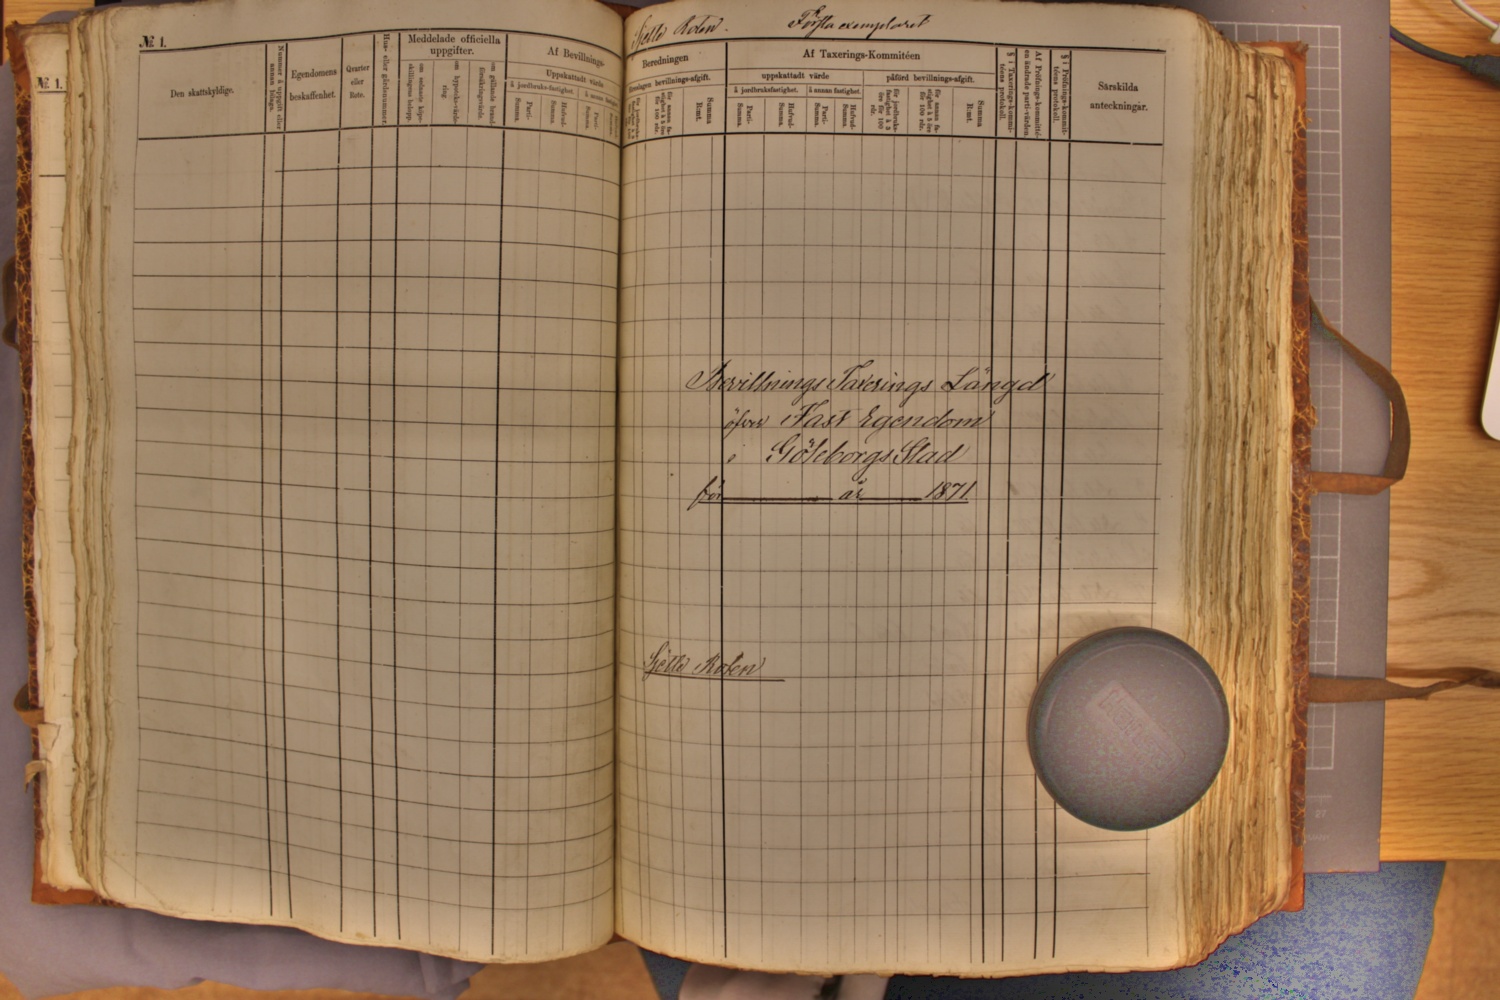 № 1.
№ 1.
Den skattskyldige.
Nummer å uppgift eller annan bilaga.
Egendomens beskaffenhet.
Qvarter eller Rote.
Hus- eller gårdsnummer.
Meddelade officiella uppgifter.
om senaste köpeskillingens belopp.
om hypoteks-värdering.
om gällande brandförsäkringsvärde.
Af Bevillnings-
Uppskattadt värde
å jordbruksfastighet.
å annan fastighet.
Parti-Summa.
Hufvud-Summa.
Parti-Summa.
Sjette Roten.
Första exemplaret
Beredningen
föreslagen bevillnings-afgift.
för annan fastighet à 5 öre för 100 rdr.
Summa Rmt.
Af Taxerings-Kommitéen
uppskattadt värde
å jordbruksfastighet.
å annan fastighet.
Parti-Summa.
Hufvud-Summa.
Parti-Summa.
Hufvud-Summa.
påförd bevillnings-afgift.
för jordbruksfastighet à 3 öre för 100 rdr.
för annan fastighet à 5 öre för 100 rdr.
Summa Rmt.
§ i Taxerings-kommitéens protokoll.
Af Pröfnings-kommitéen ändrade parti-värden.
§ i Pröfnings-kommitéens protokoll.
Särskilda anteckningar.
Bevillnings Taxerings Längd
öfver Fast Egendom
i Göteborgs Stad
för år 1871
Sjette Roten